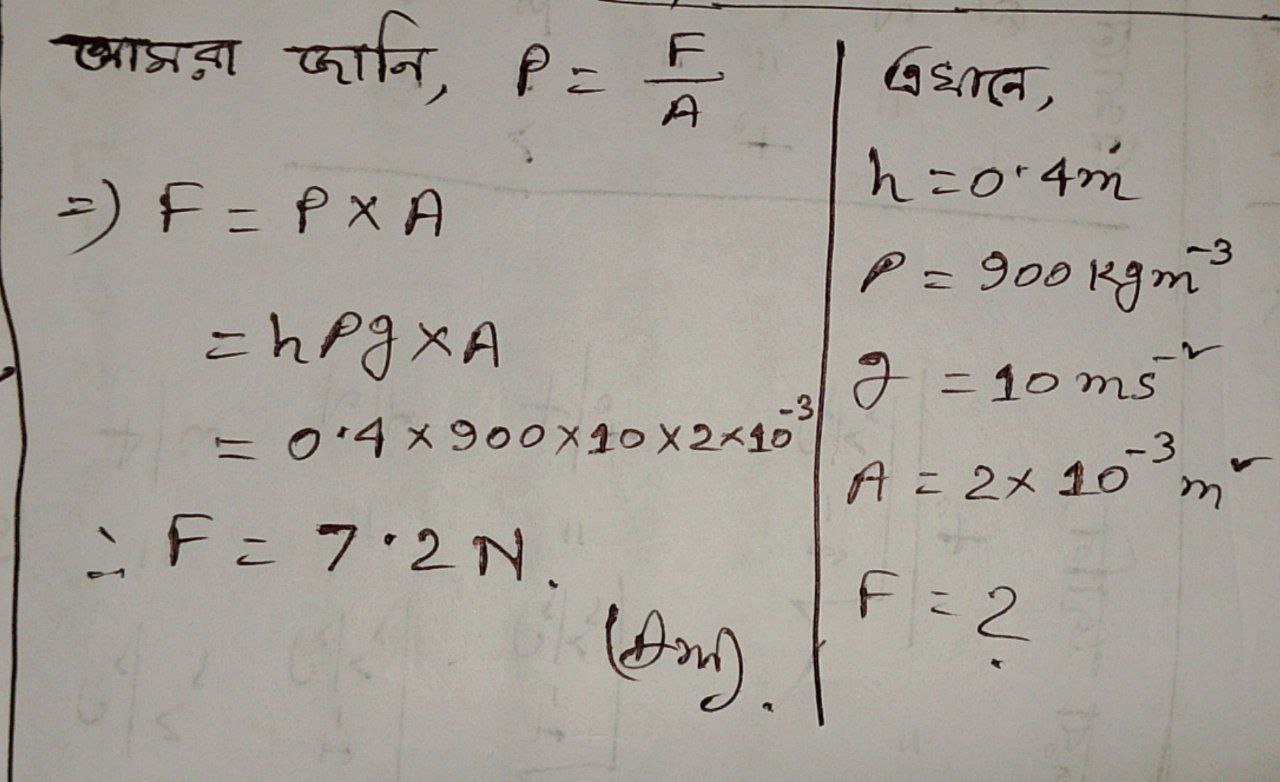 আমরা জানি, P = F/A
=) F = P × A
= hρg × A
= 0.4 × 900 × 10 × 2 × 10⁻³
∴ F = 7.2 N.
(Ans).
এখানে,
h = 0.4 m
ρ = 900 kgm⁻³
g = 10 ms⁻²
A = 2 × 10⁻³ m²
F = ?